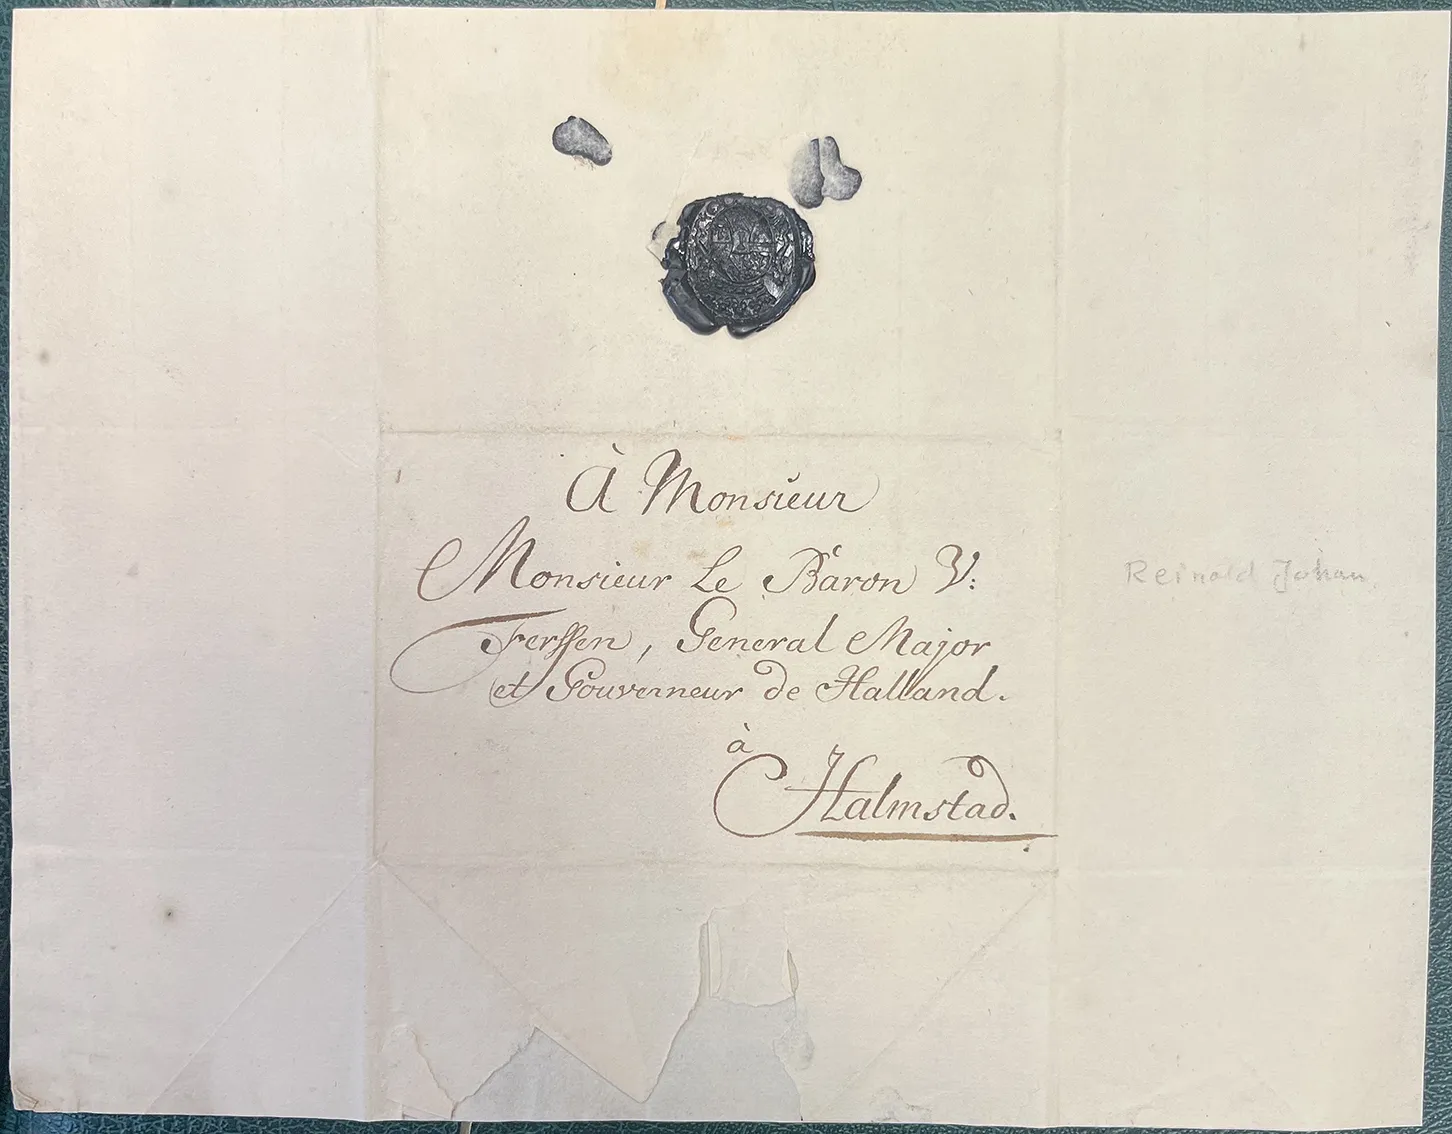 À Monsieur
Monsieur Le Baron V:
Ferssen, General Major
et Gouverneur de Halland.
à
Halmstad.
Reinold Johan